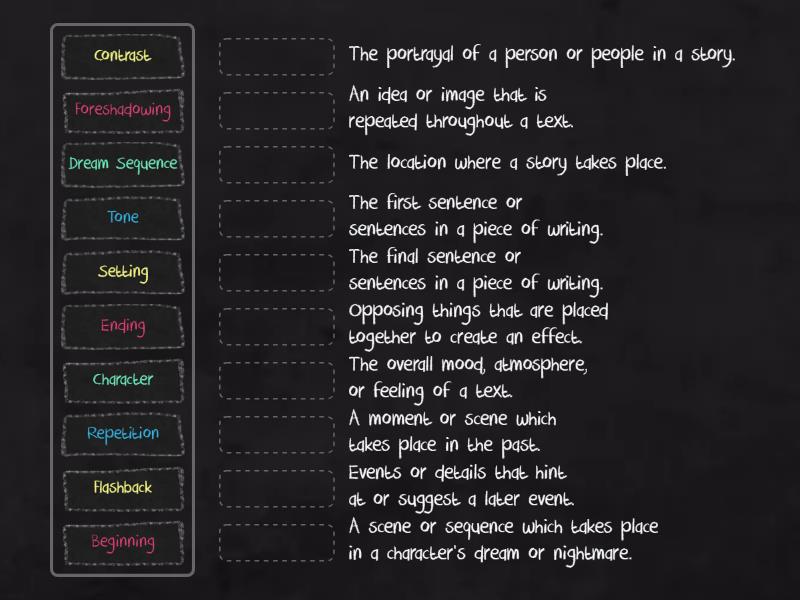 Contrast
Foreshadowing
Dream Sequence
Tone
Setting
Ending
Character
Repetition
Flashback
Beginning
The portrayal of a person or people in a story.
An idea or image that is
repeated throughout a text.
The location where a story takes place.
The first sentence or
sentences in a piece of writing.
The final sentence or
sentences in a piece of writing.
Opposing things that are placed
together to create an effect.
The overall mood, atmosphere,
or feeling of a text.
A moment or scene which
takes place in the past.
Events or details that hint
at or suggest a later event.
A scene or sequence which takes place
in a character's dream or nightmare.